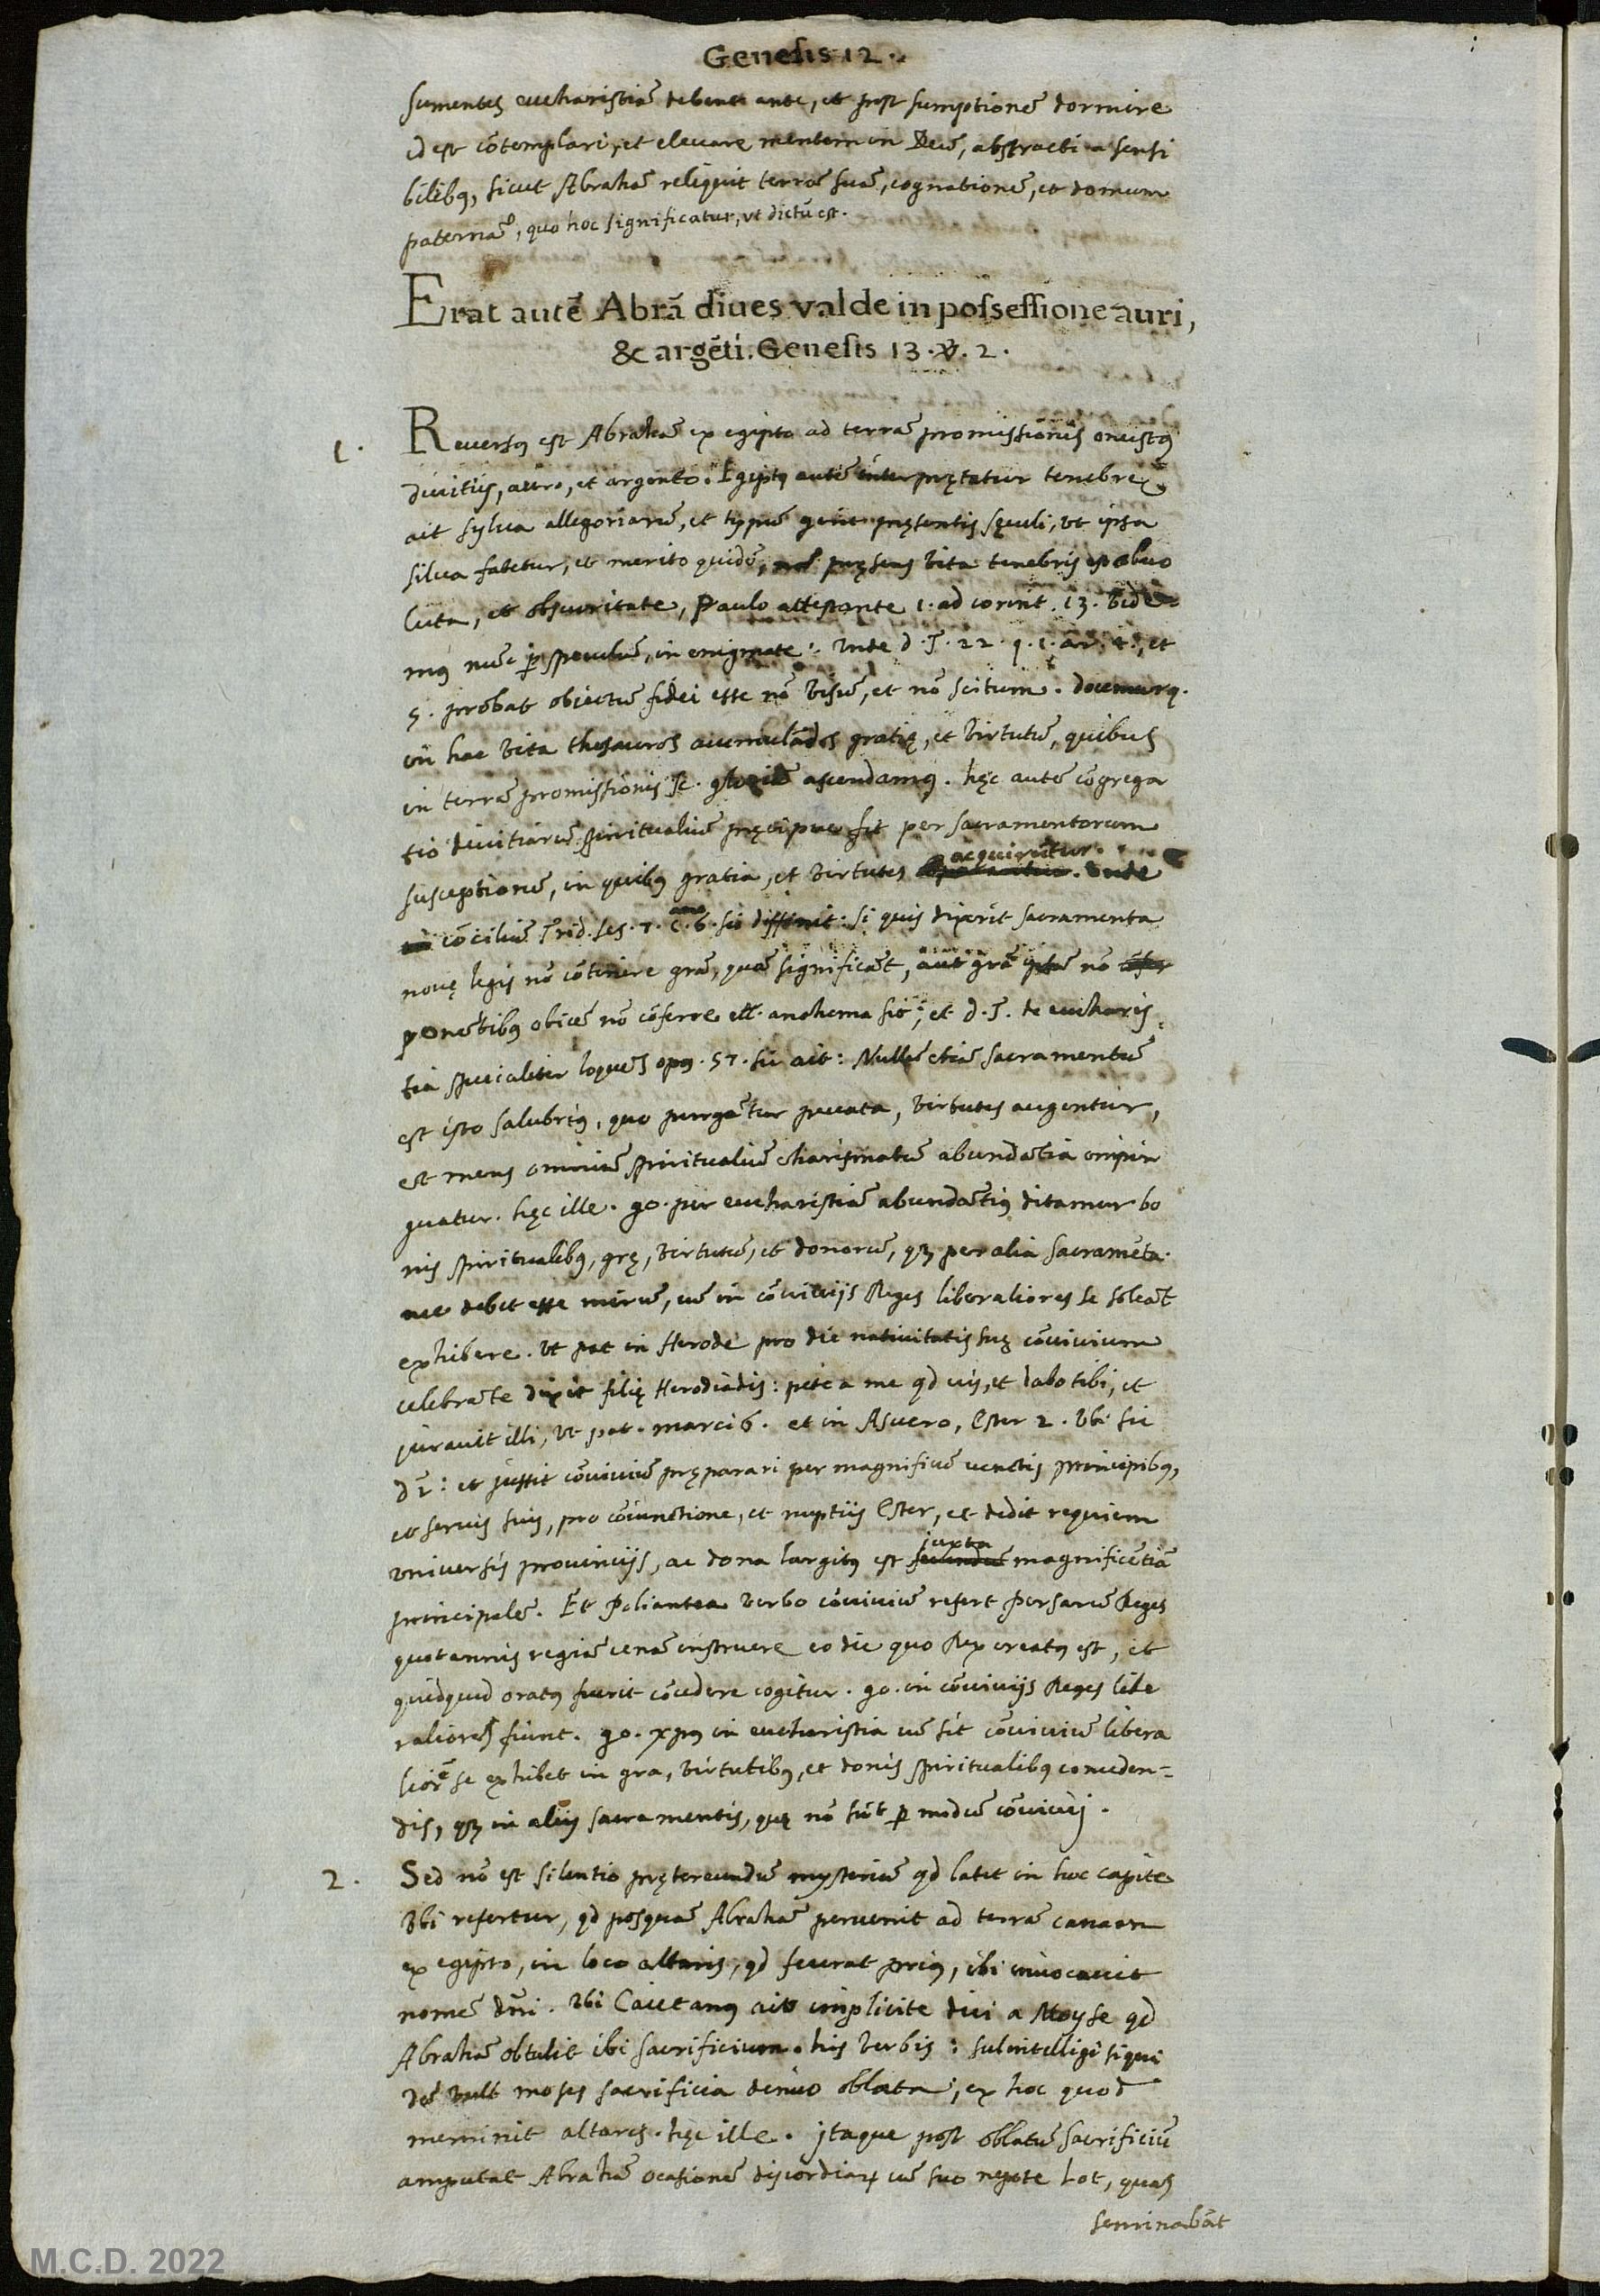 Genesis 12.
sumentes eucharistiã debent ante, et post sumptionẽ dormire
id est cõtemplari, et eleuare mentem in Deũ, abstracti a sensi
bilibus, sicut Abrahã reliquit terrã suã, cognationẽ, et domum
paternã, quo hoc significatur, vt dictũ est.
Erat autẽ Abrã diues valde in possessione auri,
& argẽti. Genesis 13. v. 2.
1. Reuersus est Abrahã ex egipto ad terrã promissionis onustus
diuitiis, auro, et argento. Egiptus autẽ interprętatur tenebrę,
ait sylua allegoriarũ, et typũ gerit pręsentis sęculi, vt ipsa
silua fatetur, et merito quidẽ, pręsens vita tenebris est obuo
luta, et obscuritate, Paulo attestante 1. ad corint. 13. vide
mus nunc p speculũ, in enigmate. vnde d. T. 22. q. 1. ar. 4. et
5. probat obiectũ fidei esse nõ visũ, et nõ scitum. docemurq.
in hac vita thesauros acumulãdos gratię, et virtutũ, quibus
in terrã promissionis sc. glorię ascendamus. hęc autẽ cõgrega
tio diuitiarũ spiritualiũ pręcipue fit per sacramentorum
susceptionẽ, in quibus gratia, et virtutes acquirũtur. vnde
cõciliũ Trid. ses. 7. c. 6. sic diffinit: si quis dixerit sacramenta
nouę legis nõ cõtinere grã, quã significãt, aut grã ipsã nõ
ponẽtibus obicẽ nõ cõferre ett. anathema sit; et d. T. de eucharis
tia specialiter loquẽs opus. 57. sic ait: Nullũ etiã sacramentũ
est isto salubrius, quo purgãtur peccata, virtutes augentur,
et mens omniũ spiritualiũ charismatũ abundãtia inpin
guatur. hęc ille. go. per eucharistiã abundãtius ditamur bo
nis spiritualibus, grę, virtutũ, et donorũ, qz per alia sacramẽta.
nec debet esse mirũ, cũ in cõuiuijs Reges liberaliores se soleãt
exhibere. vt pat in Herode pro die natiuitatis suę cõuiuium
celebrãte dixit filię Herodiadis: pete a me qd vis, et dabo tibi, et
jurauit illi, vt pat. marci 6. et in Asuero, Ester 2. vbi sic
dr: et jussit cõuiuiũ pręparari per magnificũ cunctis principibus,
et seruis suis, pro cõiunctione, et nuptiis Ester, et dedit requiem
vniuersis prouincijs, ac dona largitus est juxta magnificẽtiã
principalẽ. Et Poliantea verbo cõuiuiũ refert Persarũ Reges
quotannis regiã cenã instruere eo die quo Rex creatus est, et
quidquid oratus fuerit cõcedere cogitur. go. in cõuiuijs Reges libe
raliores fiunt. go. xpus in eucharistia cũ sit cõuiuiũ libera
liorẽ se exhibet in gra, virtutibus, et donis spiritualibus conceden=
dis, qz in alijs sacramentis, quę nõ sũt p modũ cõuiuij.
2. Sed nõ est silentio prętereundũ mysteriũ qd latet in hoc capite
vbi refertur, qd posquã Abrahã peruenit ad terrã canaan
ex egipto, in loco altaris, qd fecerat prius, ibi inuocauit
nomẽ dñi. vbi Caietanus ait implicite dici a Moyse qd
Abrahã obtulit ibi sacrificium. his verbis: subintelligi siqui
dẽ vult moses sacrificia denuo oblata, ex hoc quod
meminit altaris. hęc ille. jtaque post oblatũ sacrificiũ
amputat Abrahã ocasionẽ discordiarum cũ suo nepote Lot, quas
seminabãt
M.C.D. 2022